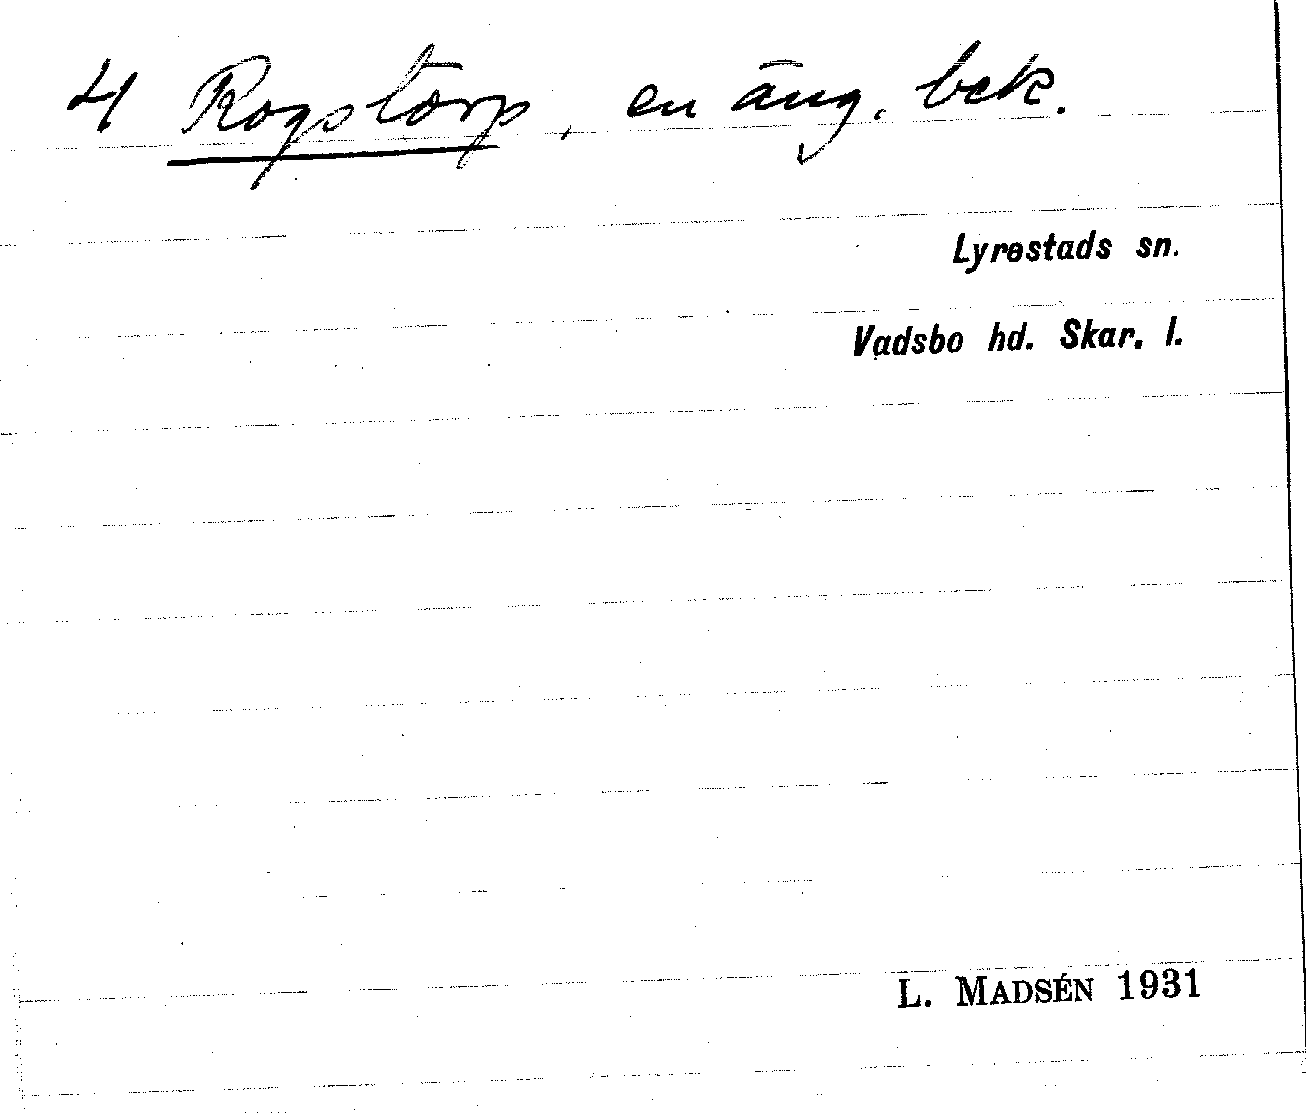 4 Rogstorp, en äng. bek.
Lyrestads sn.
Vadsbo hd. Skar. l.
L. MADSÉN 1931